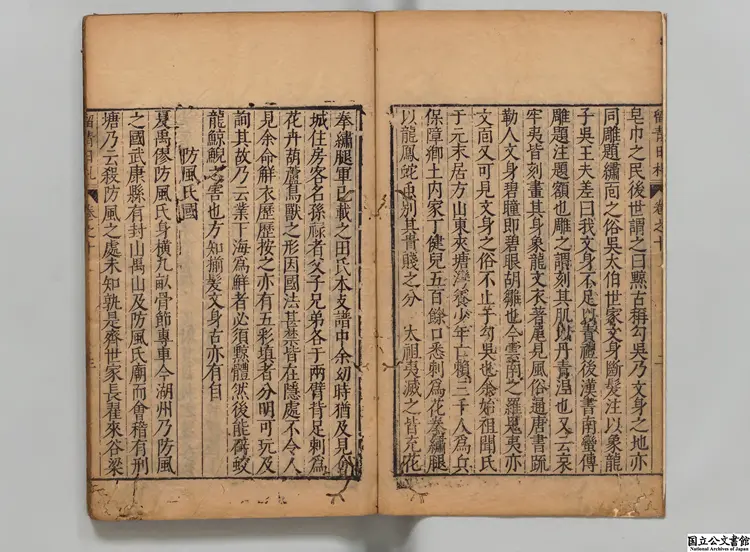 留青日札 卷之十
皂巾之民後世謂之曰黥古稱勾吳乃文身之地亦
同雕題繡面之俗吳太伯世家文身斷髮注以象龍
子吳王夫差曰我文身不足以責禮後漢書南蠻傳
雕題注題額也雕之謂刻其肌以丹青涅也又云哀
牢夷皆刻畫其身象龍文衣著尾見風俗通唐書䟽
勒人文身碧瞳即碧眼胡雛也今雲南之羅鬼夷亦
文面又可見文身之俗不止于勾吳也余始祖聞氏
于元末居方山東夾塘灣養少年亡賴三千人為兵
保障鄉土内家丁健兒五百餘口悉刺為花拳繡腿
以龍鳳蛇虫別其貴賤之分 太祖夷滅之皆充花
拳繡腿軍已載之田氏本支譜中余幼時猶及見
城住房客名孫者父子兄弟各于兩臂背足刺為
花卉葫蘆鳥獸之形因國法甚禁皆在隱處不令人
見余命解衣歷歷按之亦有五彩填者分明可玩及
詢其故乃云業下海為鮮者必須黥體然後能辟蛟
龍鯨鯢之害也方知揃髮文身古亦有自
防風氏國
夏禹僇防風氏身橫九畝骨節專車今湖州乃防風
之國武康縣有封山禺山及防風氏廟而會稽有刑
塘乃云殺防風之處未知孰是齊世家長翟來谷梁
留青日札 卷之十
国立公文書館
National Archives of Japan